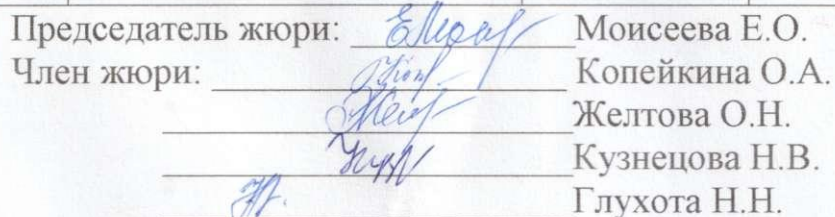 Председатель жюри: Моисеева Е.О.
Член жюри: Копейкина О.А.
Желтова О.Н.
Кузнецова Н.В.
Глухота Н.Н.